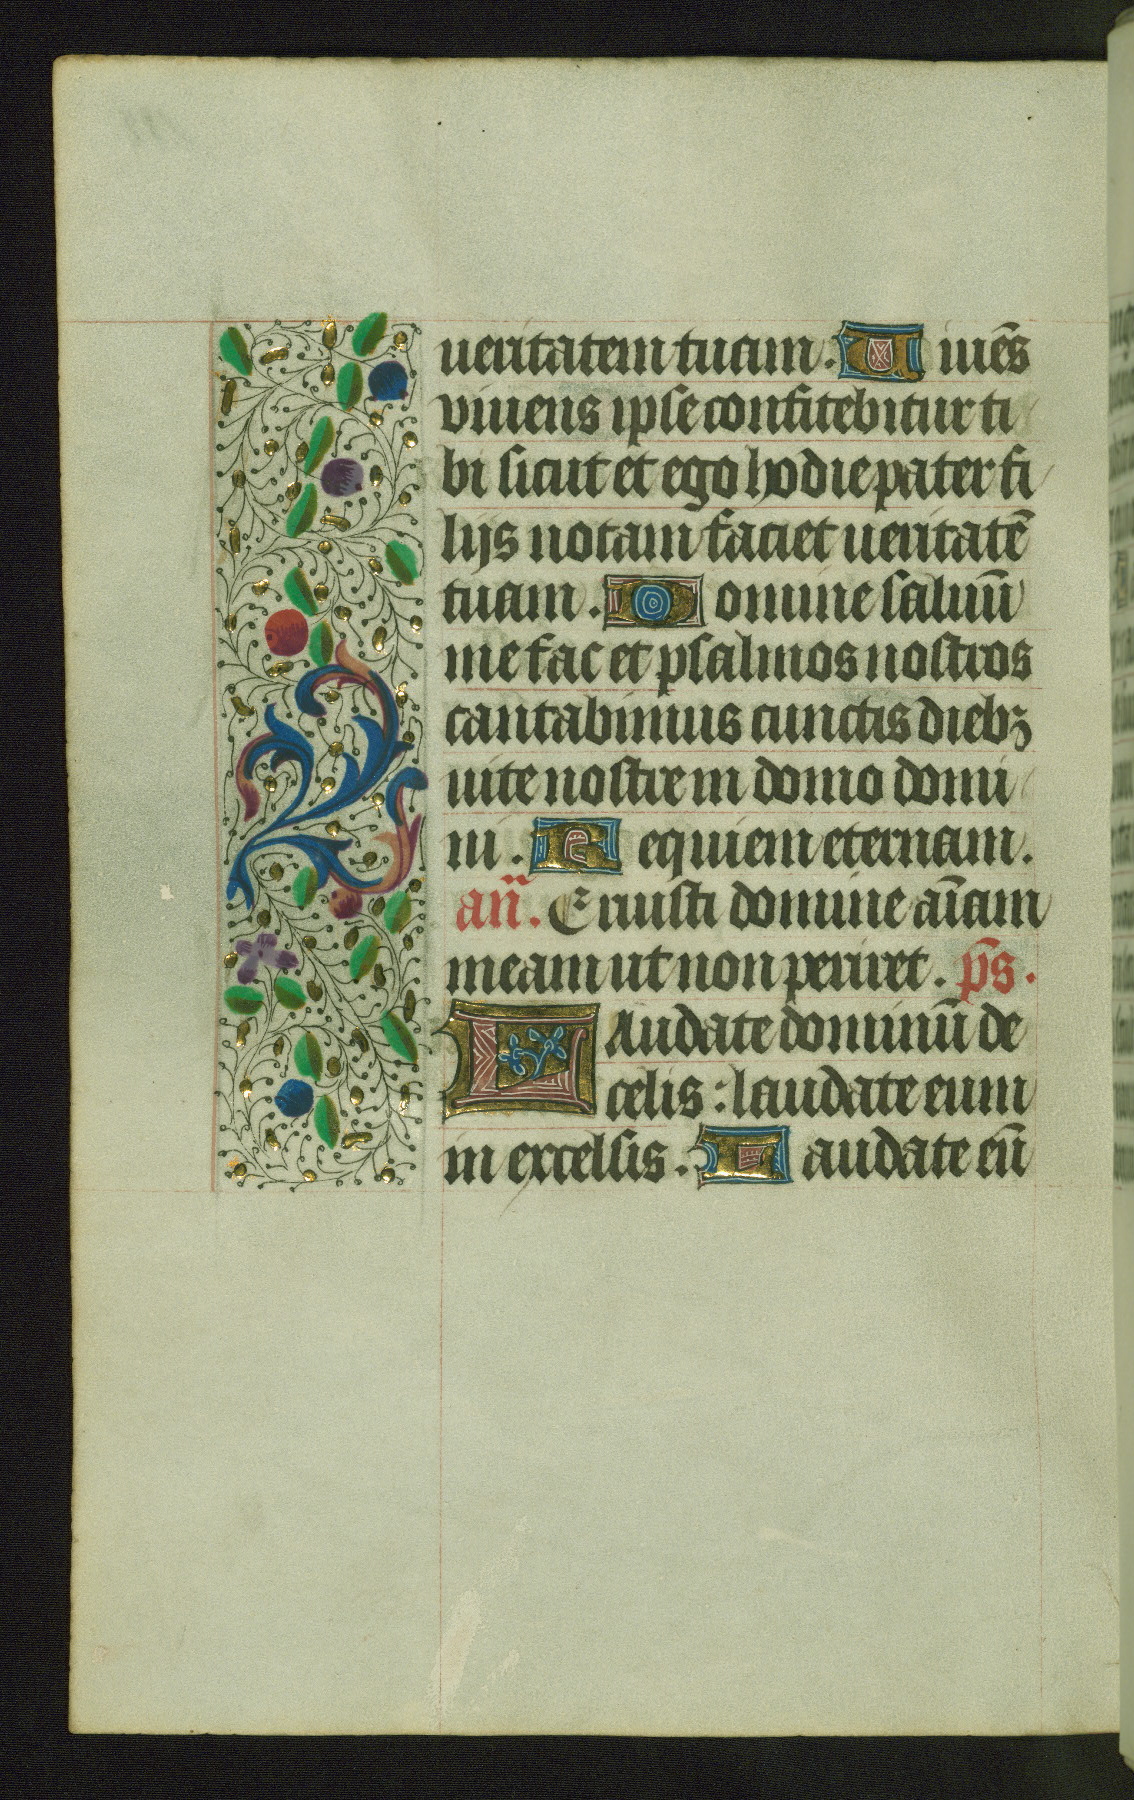 ueritatem tuam. Uiuēs
viuens ipse confitebitur ti
bi sicut et ego hodie pater fi
lijs notam faciet ueritatē
tuam. Domine saluū
me fac et psalmos nostros
cantabimus cunctis diebꝫ
uite nostre in domo domi
ni. Requiem eternam.
añ. Eruisti domine aīam
meam ut non periret. p̄s.
Laudate dominū de
celis: laudate eum
in excelsis. Laudate eū